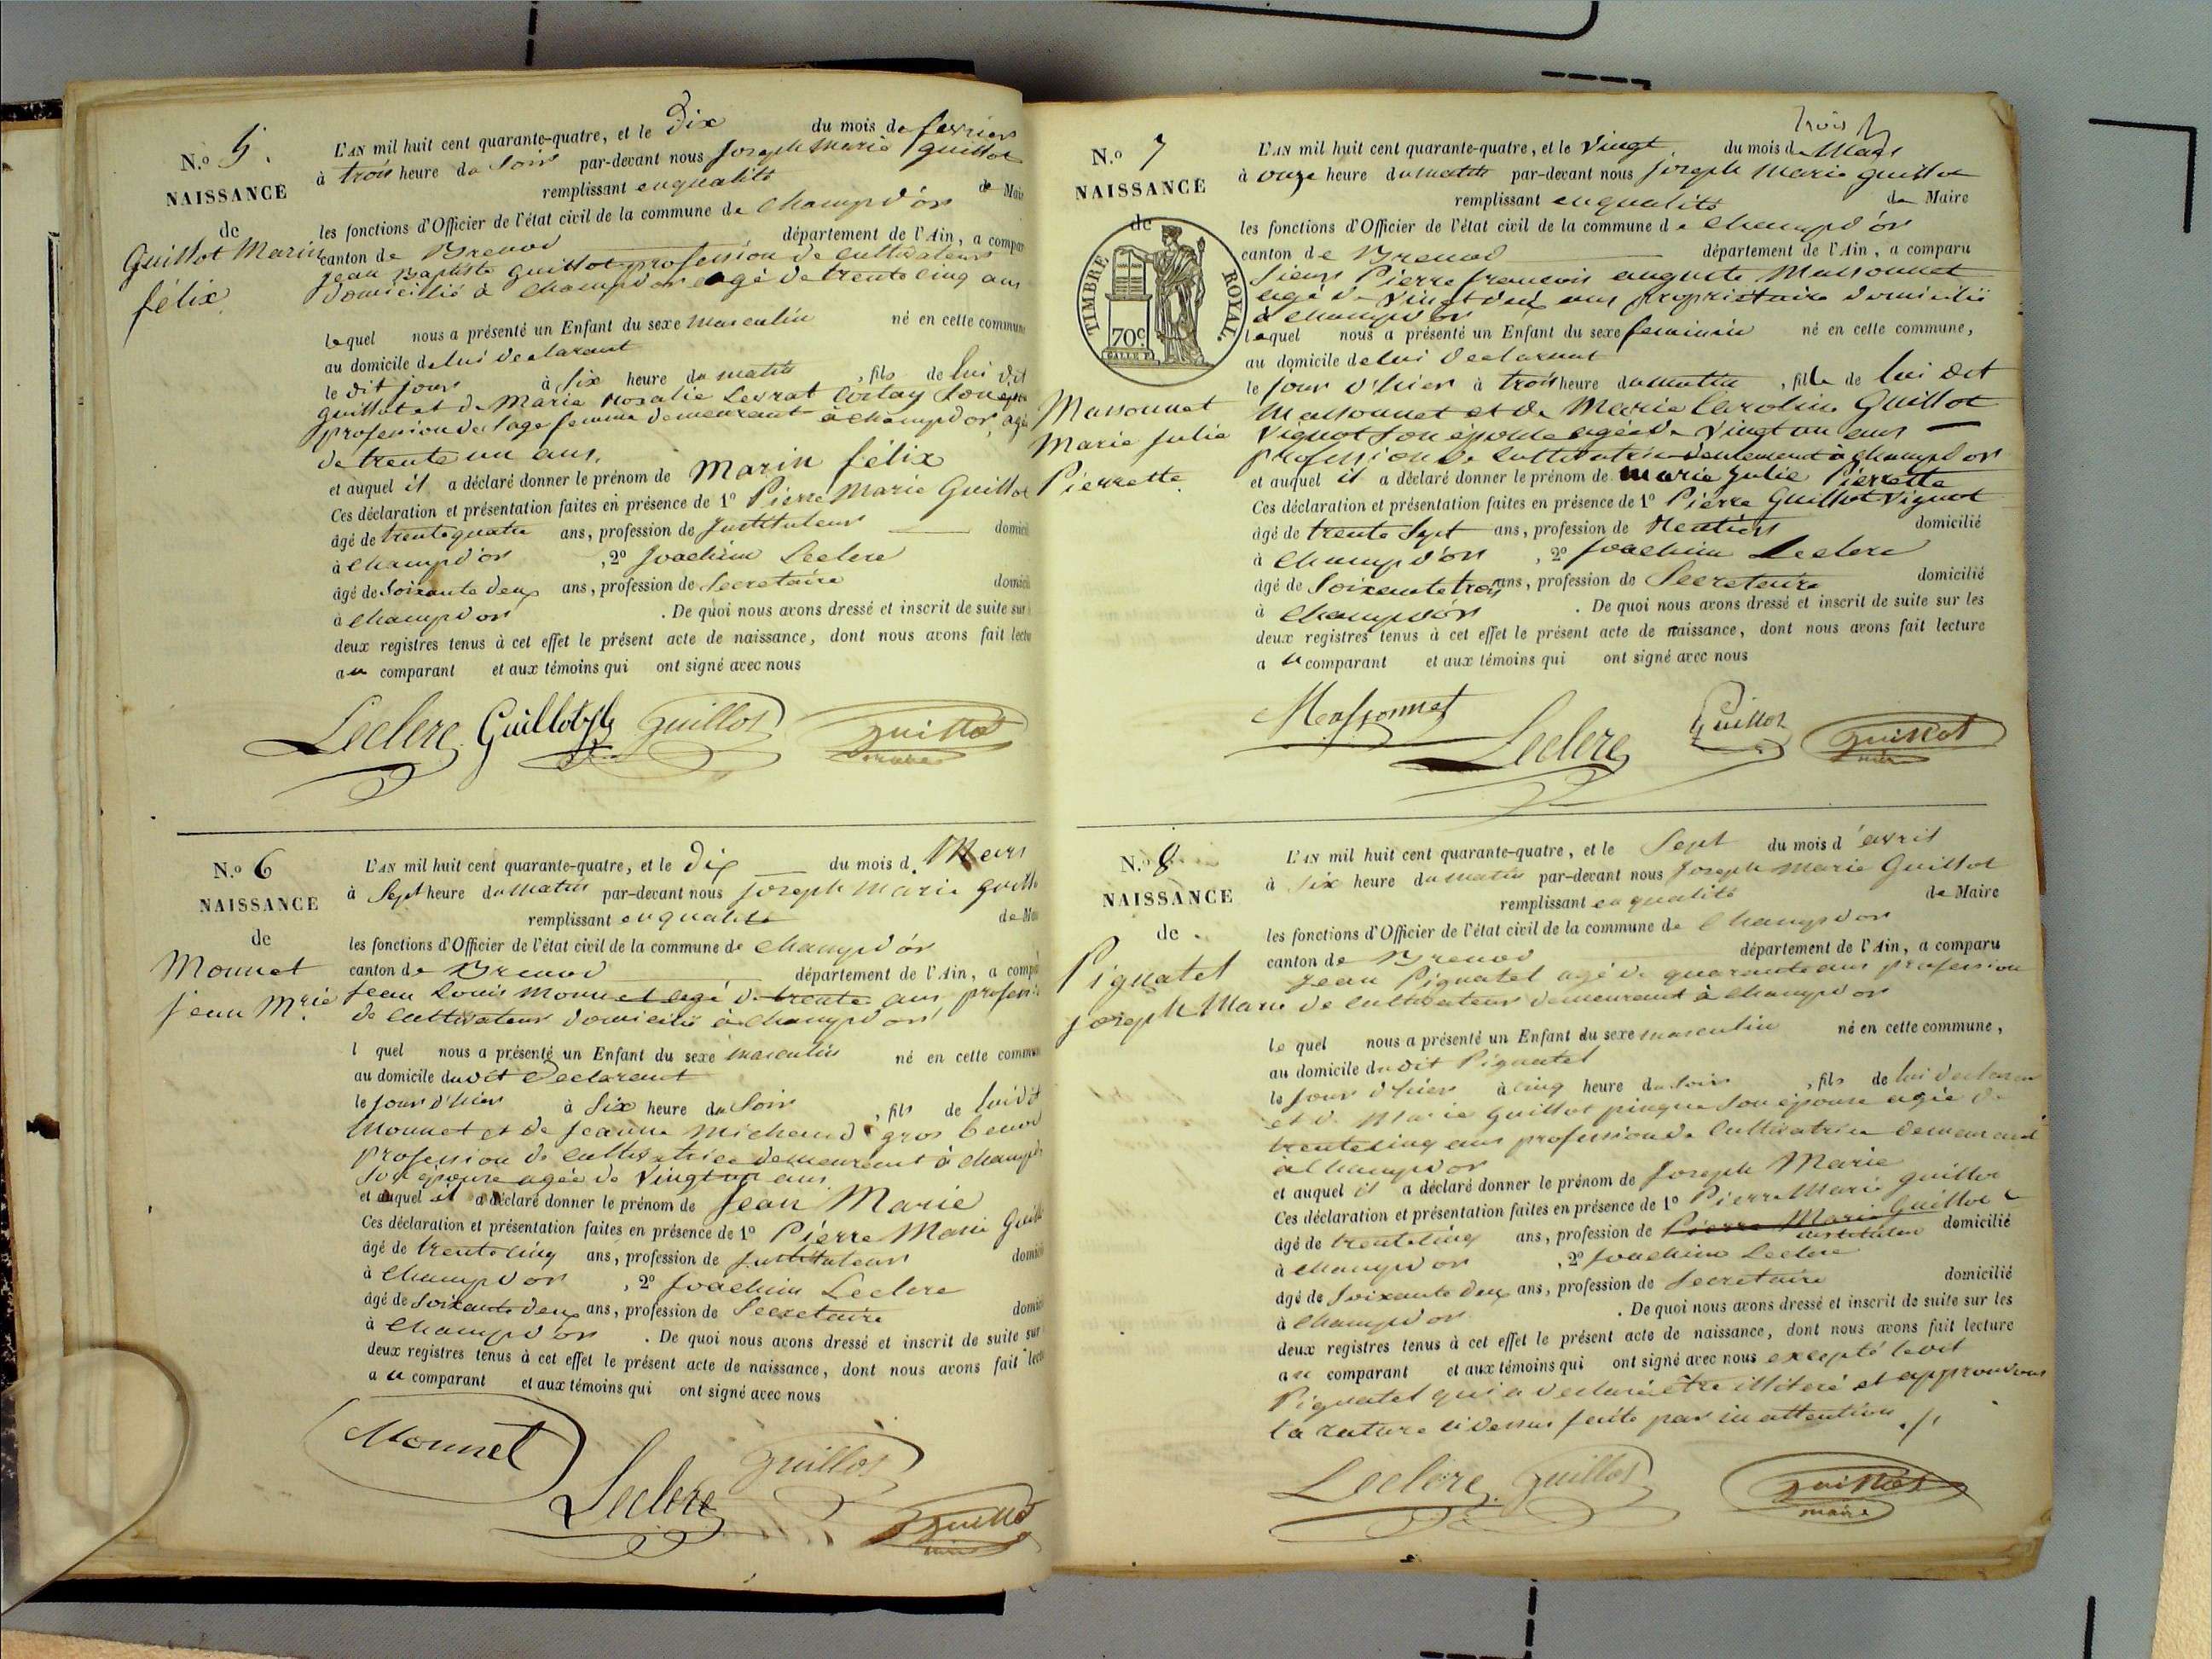 N.º 5.
NAISSANCE
de
Guillot Marin
félix
L'AN mil huit cent quarante-quatre, et le Dix du mois de fevrier
à trois heure du Soir par-devant nous Joseph Marie Guillot
remplissant en qualité de Mai
les fonctions d'Officier de l'état civil de la commune de Champd'or
canton de Brenod département de l'Ain, a compar
Jean Baptiste Guillot profession de Cultivateur
domicilié à Champd'or agé de trente cinq ans
lequel nous a présenté un Enfant du sexe masculin né en cette commune
au domicile de lui declarant
le dit jour à Six heure du matin , fils de lui dit
guillot et de Marie Rosalie Levrat Corlay son
profession de Sage femme demeurant à Champd'or, agé
de trente un ans.
et auquel il a déclaré donner le prénom de Marin félix
Ces déclaration et présentation faites en présence de 1º Pierre Marie Guillot
âgé de trente quatre ans, profession de Instituteur domici
à Champd'or , 2º Joachim Leclerc
âgé de Soixante deux ans, profession de Secretaire domici
à Champd'or . De quoi nous avons dressé et inscrit de suite sur
deux registres tenus à cet effet le présent acte de naissance, dont nous avons fait lectu
au comparant et aux témoins qui ont signé avec nous
Leclerc Guillot Guillot Guillot
maire
N.º 6
NAISSANCE
de
Monnet
Jean Mrie
L'AN mil huit cent quarante-quatre, et le Dix du mois d. Mars
à Sept heure du matin par-devant nous Joseph Marie Guillo
remplissant en qualité de Mai
les fonctions d'Officier de l'état civil de la commune de Champd'or
canton de Brenod département de l'Ain, a compa
Jean Louis Monnet agé de trente ans professi
de Cultivateur domicilié à Champd'or
l quel nous a présenté un Enfant du sexe masculin né en cette commun
au domicile dudit Declarant
le jour d'hier à Six heure du Soir , fils de lui dit
Monnet et de Jeanne Michaud gros
profession de cultivatrice demeurant à Champd'or
Son épouse agée de Vingt un ans
et auquel il a déclaré donner le prénom de Jean Marie
Ces déclaration et présentation faites en présence de 1º Pierre Marie Guill
âgé de trente cinq ans, profession de Instituteur domici
à Champd'or , 2º Joachim Leclerc
âgé de Soixante deux ans, profession de Secretaire domici
à Champd'or . De quoi nous avons dressé et inscrit de suite sur
deux registres tenus à cet effet le présent acte de naissance, dont nous avons fait lectu
au comparant et aux témoins qui ont signé avec nous
Monnet Leclerc Guillot Guillot
maire
trois
N.º 7
NAISSANCE
de
TIMBRE ROYAL.
70c.
Massonnet
Marie Julie
Pierrette
L'AN mil huit cent quarante-quatre, et le Vingt du mois de Mars
à onze heure du matin par-devant nous Joseph Marie Guillot
remplissant en qualité de Maire
les fonctions d'Officier de l'état civil de la commune de Champd'or
canton de Brenod département de l'Ain, a comparu
Sieur Pierre francois auguste Massonnet
agé de Vingt dix ans proprietaire domicilié
à Champd'or
lequel nous a présenté un Enfant du sexe feminin né en cette commune,
au domicile de lui declarant
le jour d'hier à trois heure du matin , fille de lui dit
Massonnet et de Marie Caroline Guillot
Vignot son épouse agée de Vingt un ans
profession de Cultivatrice demeurant à Champd'or
et auquel il a déclaré donner le prénom de marie Julie Pierrette
Ces déclaration et présentation faites en présence de 1º Pierre Guillot Vignot
âgé de trente Sept ans, profession de Rentier domicilié
à Champd'or , 2º Joachim Leclerc
âgé de Soixante trois ans, profession de Secretaire domicilié
à Champd'or . De quoi nous avons dressé et inscrit de suite sur les
deux registres tenus à cet effet le présent acte de naissance, dont nous avons fait lecture
au comparant et aux témoins qui ont signé avec nous
Massonnet Leclerc Guillot Guillot
N.º 8
NAISSANCE
de
Pignatel
Joseph Marie
L'AN mil huit cent quarante-quatre, et le Sept du mois d'avril
à Six heure du matin par-devant nous Joseph Marie Guillot
remplissant en qualité de Maire
les fonctions d'Officier de l'état civil de la commune de Champd'or
canton de Brenod département de l'Ain, a comparu
Jean Pignatel agé de quarante ans profession
de Cultivateur demeurant à Champd'or
le quel nous a présenté un Enfant du sexe masculin né en cette commune,
au domicile dudit Pignatel
le jour d'hier à cinq heure du soir , fils de lui declarant
et de Marie Guillot pingue son épouse agée de
trente cinq ans profession de Cultivatrice demeurant
à Champd'or
et auquel il a déclaré donner le prénom de Joseph Marie
Ces déclaration et présentation faites en présence de 1º Pierre Marie guillot
âgé de trente cinq ans, profession de Pierre Marie Guillot instituteur domicilié
à Champd'or , 2º Joachim Leclerc
âgé de Soixante deux ans, profession de Secretaire domicilié
à Champd'or . De quoi nous avons dressé et inscrit de suite sur les
deux registres tenus à cet effet le présent acte de naissance, dont nous avons fait lecture
au comparant et aux témoins qui ont signé avec nous excepté ledit
Pignatel qui a declaré être illiteré et approuvons
la rature ci dessus faite par inattention ./.
Leclerc Guillot Guillot
maire